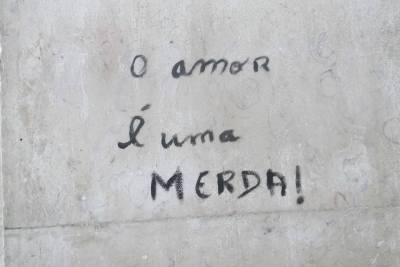 O amor
É uma
MERDA!